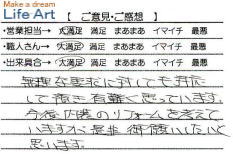 Make a dream
Life Art
【 ご意見・ご感想 】
・営業担当→ 大満足 満足 まあまあ イマイチ 最悪
・職人さん→ 大満足 満足 まあまあ イマイチ 最悪
・出来具合→ 大満足 満足 まあまあ イマイチ 最悪
無理な要求に対しても対応
して頂き有難く思っています。
今後内装のリフォームを考えて
いますので是非御願いしたいと
思います。